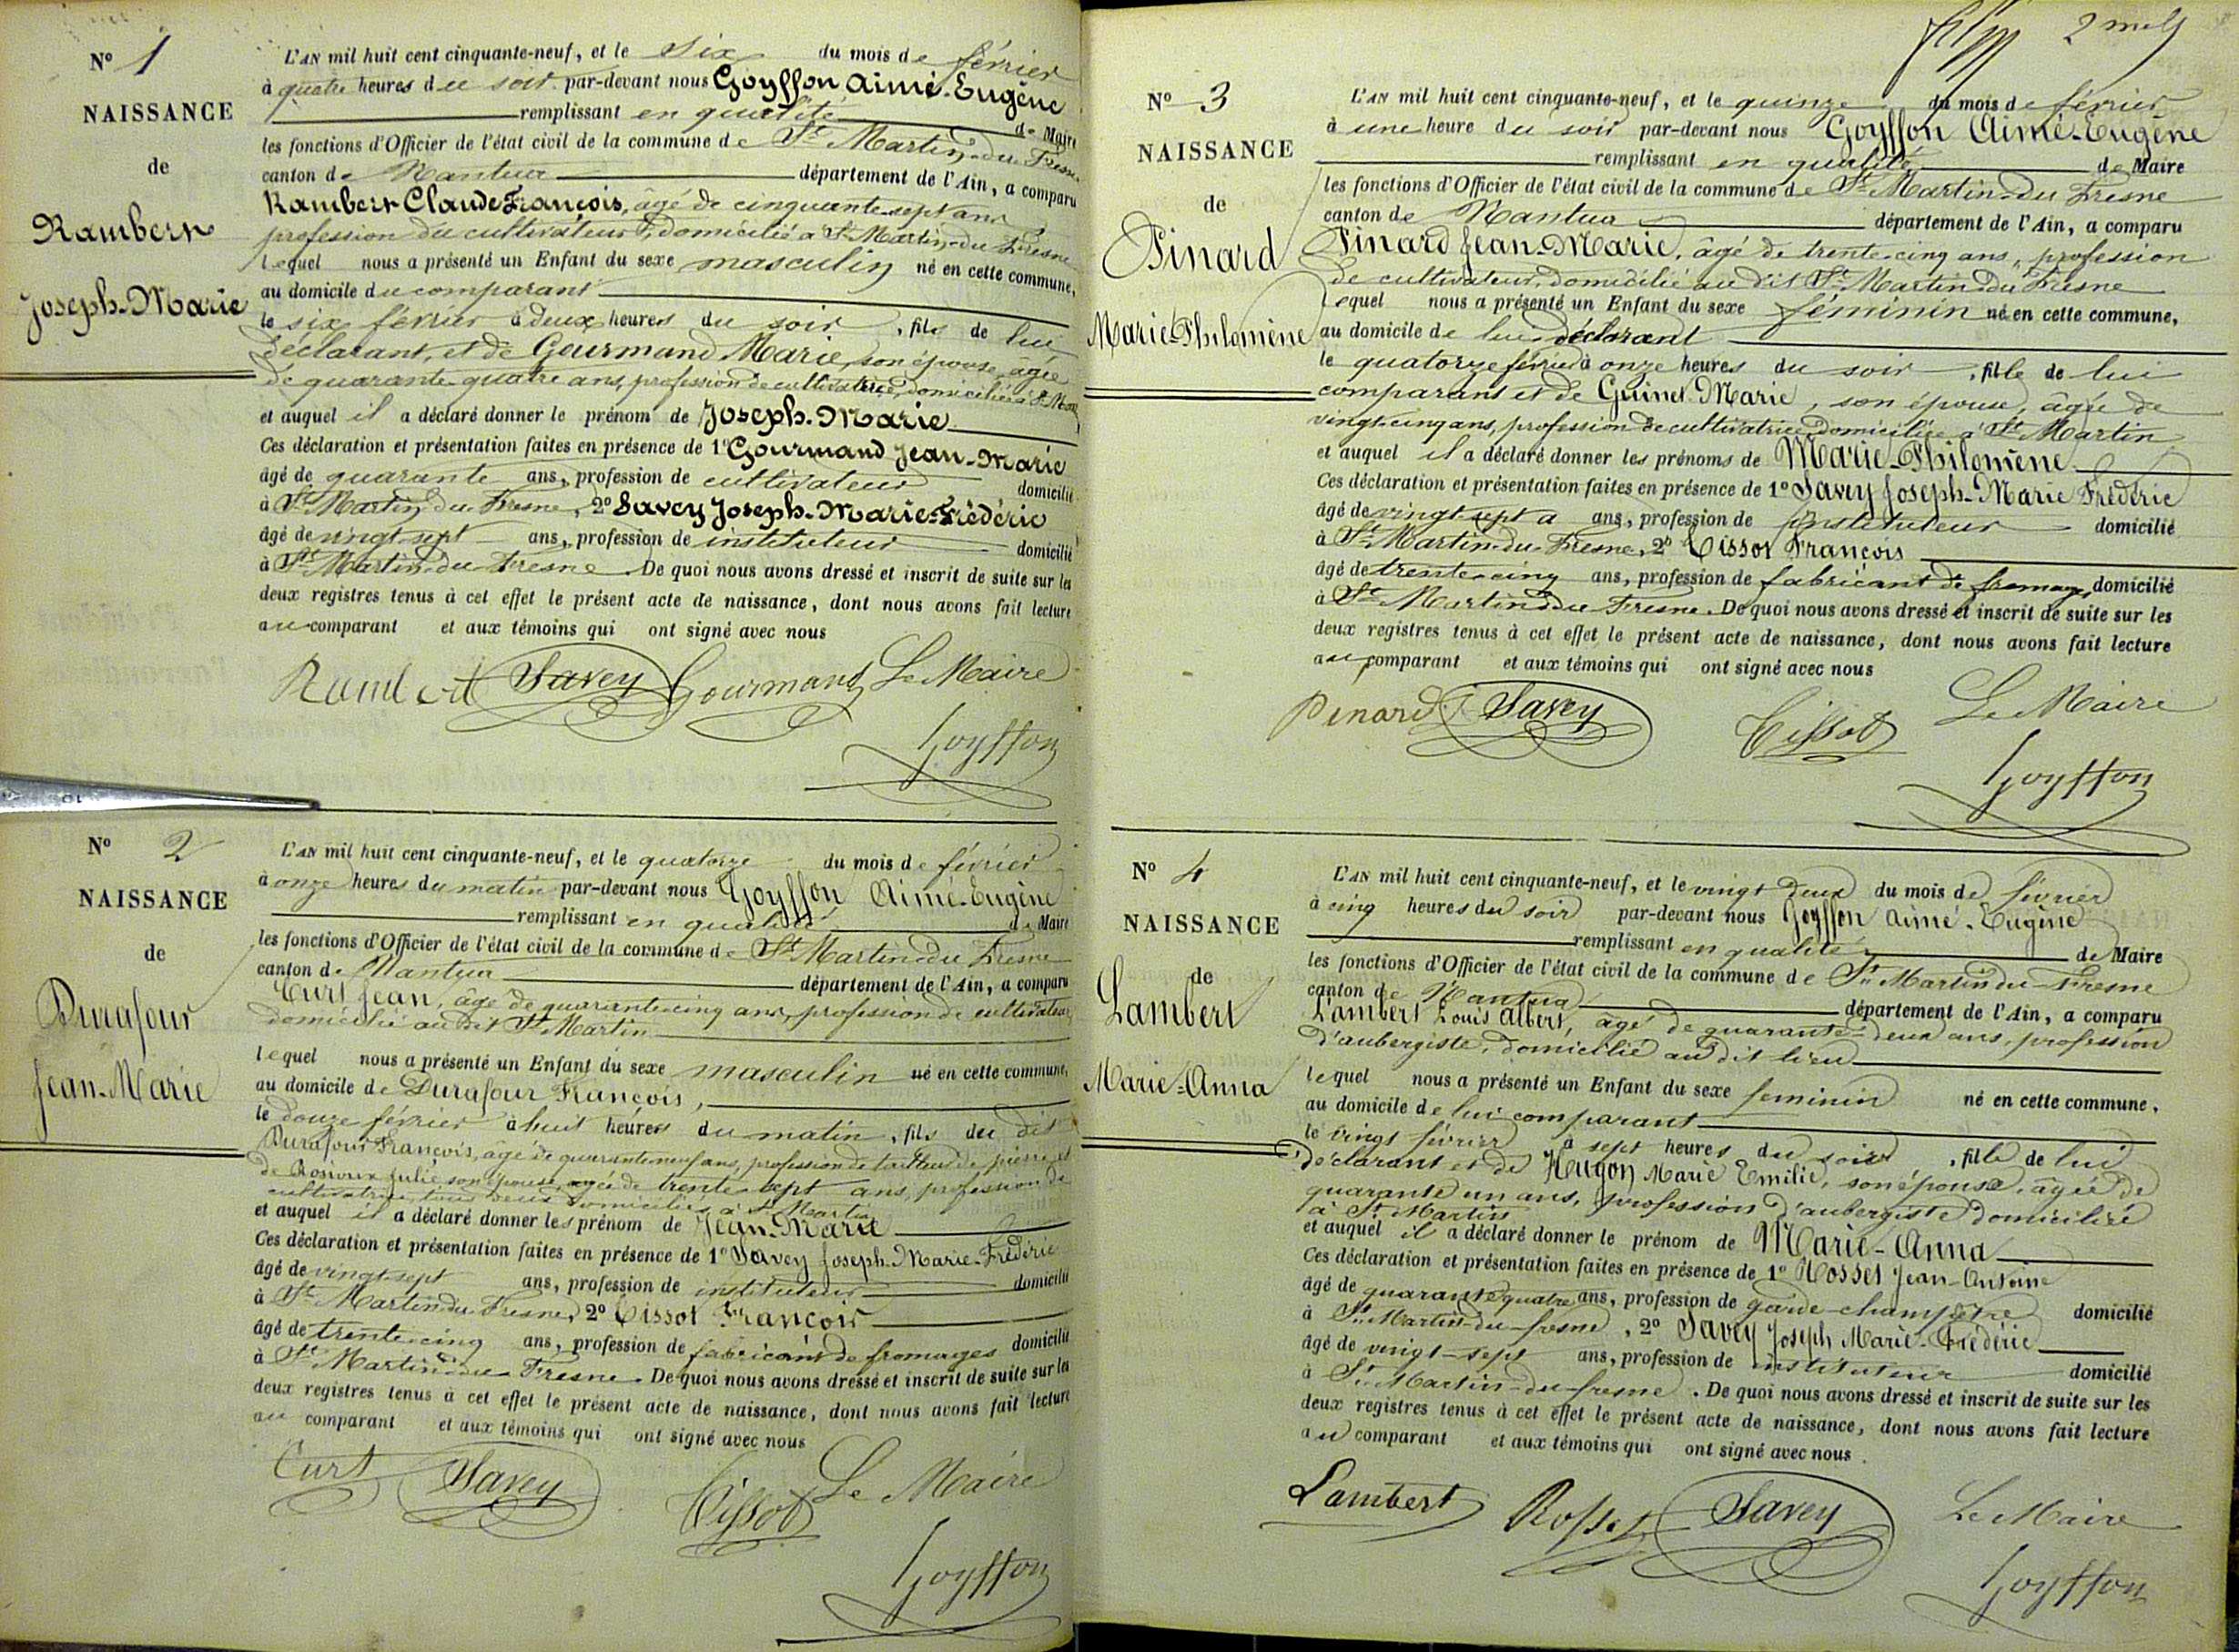 Nº 1
NAISSANCE
de
Rambert
Joseph-Marie
L'AN mil huit cent cinquante-neuf, et le six du mois de février
à quatre heures du soir par-devant nous Goyffon Aimé-Eugène
remplissant en qualité de Maire
les fonctions d'Officier de l'état civil de la commune de St Martin-du Fresne
canton de Nantua département de l'Ain, a comparu
Rambert Claude François, âgé de cinquante-sept ans
profession de cultivateur, domicilié à St Martin-du Fresne
lequel nous a présenté un Enfant du sexe masculin né en cette commune,
au domicile du comparant
le six février à deux heures du soir, fils de lui
déclarant, et de Gourmand Marie, son épouse, âgée
de quarante-quatre ans, profession de cultivatrice, domiciliée à St
et auquel il a déclaré donner le prénom de Joseph-Marie
Ces déclaration et présentation faites en présence de 1º Gourmand Jean-Marie
âgé de quarante ans, profession de cultivateur domicilié
à St Martin du Fresne, 2º Savey Joseph-Marie-Frédéric
âgé de vingt-sept ans, profession de instituteur domicilié
à St Martin-du-Fresne. De quoi nous avons dressé et inscrit de suite sur les
deux registres tenus à cet effet le présent acte de naissance, dont nous avons fait lecture
au comparant et aux témoins qui ont signé avec nous
Rambert Savey Gourmand Le Maire
Goyffon
Nº 2
NAISSANCE
de
Durafour
Jean-Marie
L'AN mil huit cent cinquante-neuf, et le quatorze du mois de février
à onze heures du matin par-devant nous Goyffon Aimé-Eugène
remplissant en qualité de Maire
les fonctions d'Officier de l'état civil de la commune de St Martin-du Fresne
canton de Nantua département de l'Ain, a comparu
Curt Jean, âgé de quarante-cinq ans, profession de cultivateur,
domicilié au dit St Martin
lequel nous a présenté un Enfant du sexe masculin né en cette commune,
au domicile de Durafour François,
le douze février à huit heures du matin, fils du dit
Durafour François, âgé de quarante-neuf ans, profession de tailleur de pierre, et
de Julie son épouse, âgée de trente-sept ans, profession de
cultivatrice, tous deux domiciliés à St Martin
et auquel il a déclaré donner les prénom de Jean-Marie
Ces déclaration et présentation faites en présence de 1º Savey Joseph-Marie-Frédéric
âgé de vingt-sept ans, profession de instituteur domicilié
à St Martin-du-Fresne, 2º Tissot François
âgé de trente-cinq ans, profession de fabricant de fromages domicilié
à St Martin-du-Fresne. De quoi nous avons dressé et inscrit de suite sur les
deux registres tenus à cet effet le présent acte de naissance, dont nous avons fait lecture
au comparant et aux témoins qui ont signé avec nous
Curt Savey Tissot Le Maire
Goyffon
Nº 3
NAISSANCE
de
Pinard
Marie-Philomène
L'AN mil huit cent cinquante-neuf, et le quinze du mois de février
à une heure du soir par-devant nous Goyffon Aimé-Eugène
remplissant en qualité de Maire
les fonctions d'Officier de l'état civil de la commune de St Martin-du Fresne
canton de Nantua département de l'Ain, a comparu
Pinard Jean-Marie, âgé de trente-cinq ans, profession
de cultivateur, domicilié au dit St Martin-du Fresne
lequel nous a présenté un Enfant du sexe féminin né en cette commune,
au domicile de lui déclarant
le quatorze février à onze heures du soir, fille de lui
comparant et de Guinet Marie, son épouse, âgée de
vingt-cinq ans, profession de cultivatrice, domiciliée à St Martin
et auquel il a déclaré donner les prénoms de Marie-Philomène
Ces déclaration et présentation faites en présence de 1º Savey Joseph-Marie Frédéric
âgé de vingt-sept a ans, profession de Instituteur domicilié
à St Martin-du-Fresne, 2º Tissot François
âgé de trente-cinq ans, profession de fabricant de fromage, domicilié
à St Martin-du Fresne. De quoi nous avons dressé et inscrit de suite sur les
deux registres tenus à cet effet le présent acte de naissance, dont nous avons fait lecture
au comparant et aux témoins qui ont signé avec nous
Pinard Savey Tissot Le Maire
Goyffon
Nº 4
NAISSANCE
de
Lambert
Marie-Anna
L'AN mil huit cent cinquante-neuf, et le vingt deux du mois de février
à cinq heures du soir par-devant nous Goyffon Aimé-Eugène
remplissant en qualité de Maire
les fonctions d'Officier de l'état civil de la commune de St Martin du-Fresne
canton de Nantua département de l'Ain, a comparu
Lambert Louis Albert, âgé de quarante-deux ans, profession
d'aubergiste, domicilié au dit lieu
lequel nous a présenté un Enfant du sexe feminin né en cette commune,
au domicile de lui comparant
le vingt février à sept heures du soir, fille de lui
déclarant et de Hugon Marie Emilie, son épouse, âgée de
quarante un ans, profession d'aubergiste domiciliée
à St Martin
et auquel il a déclaré donner le prénom de Marie-Anna
Ces déclaration et présentation faites en présence de 1º Rosset Jean-Antoine
âgé de quarante quatre ans, profession de garde-champêtre domicilié
à St Martin-du-fresne, 2º Savey Joseph Marie-Frédéric
âgé de vingt-sept ans, profession de instituteur domicilié
à St Martin-du-fresne. De quoi nous avons dressé et inscrit de suite sur les
deux registres tenus à cet effet le présent acte de naissance, dont nous avons fait lecture
au comparant et aux témoins qui ont signé avec nous.
Lambert Rosset Savey Le Maire
Goyffon